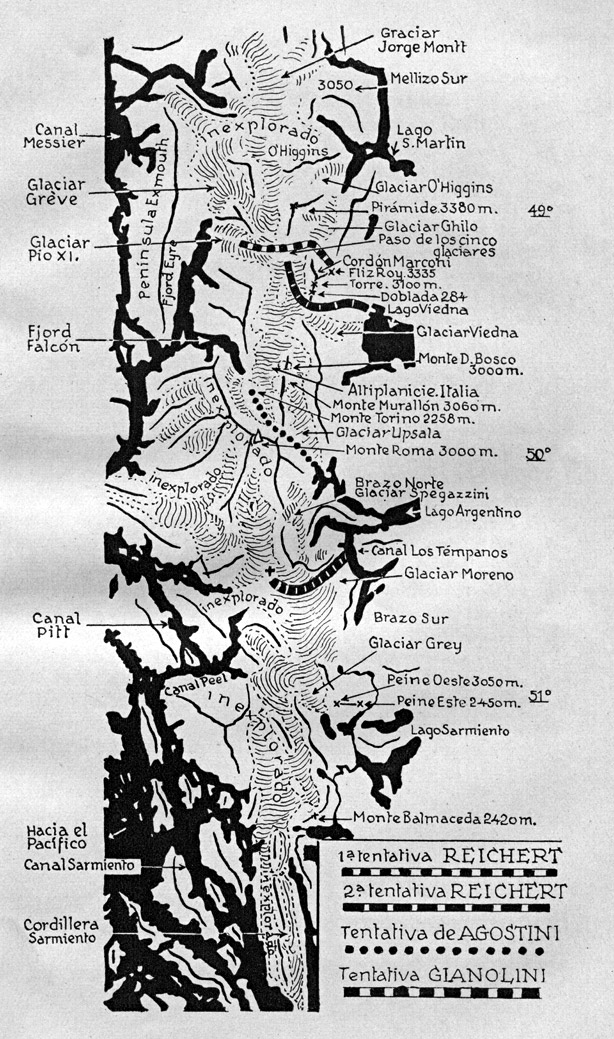 Graciar
Jorge Montt
3050
Mellizo Sur
Canal
Messier
inexplorado
O'Higgins
Lago
S. Martin
Glaciar
Grève
Peninsula Exmouth
Glaciar O'Higgins
Pirámide. 3380 m.
49º
Glaciar
Pio XI.
Fjord Eyre
Glaciar Ghilo
Paso de los cinco
glaciares
Cordón Marconi
Fliz Roy. 3335
Torre. 3100 m.
Doblada 284
Lago Viedna
Fjord
Falcón
Glaciar Viedna
Monte D. Bosco
3000 m.
Altiplanicie. Italia
Monte Murallón 3060 m.
Monte Torino 2258 m.
Glaciar Upsala
inexplorado
Monte Roma 3000 m.
50º
inexplorado
Brazo Norte
Glaciar Spegazzini
Lago Argentino
Canal Los Témpanos
Glaciar Moreno
inexplorado
Canal
Pitt
Brazo Sur
Glaciar Grey
Canal Peel
inexplorado
Peine Oeste 3050 m.
51º
Peine Este 2450 m.
Lago Sarmiento
Monte Balmaceda 2420 m.
Hacia el
Pacífico
Canal Sarmiento
Cordillera
Sarmiento
inexplorado
1ª tentativa REICHERT
2ª tentativa REICHERT
Tentativa de AGOSTINI
Tentativa GIANOLINI